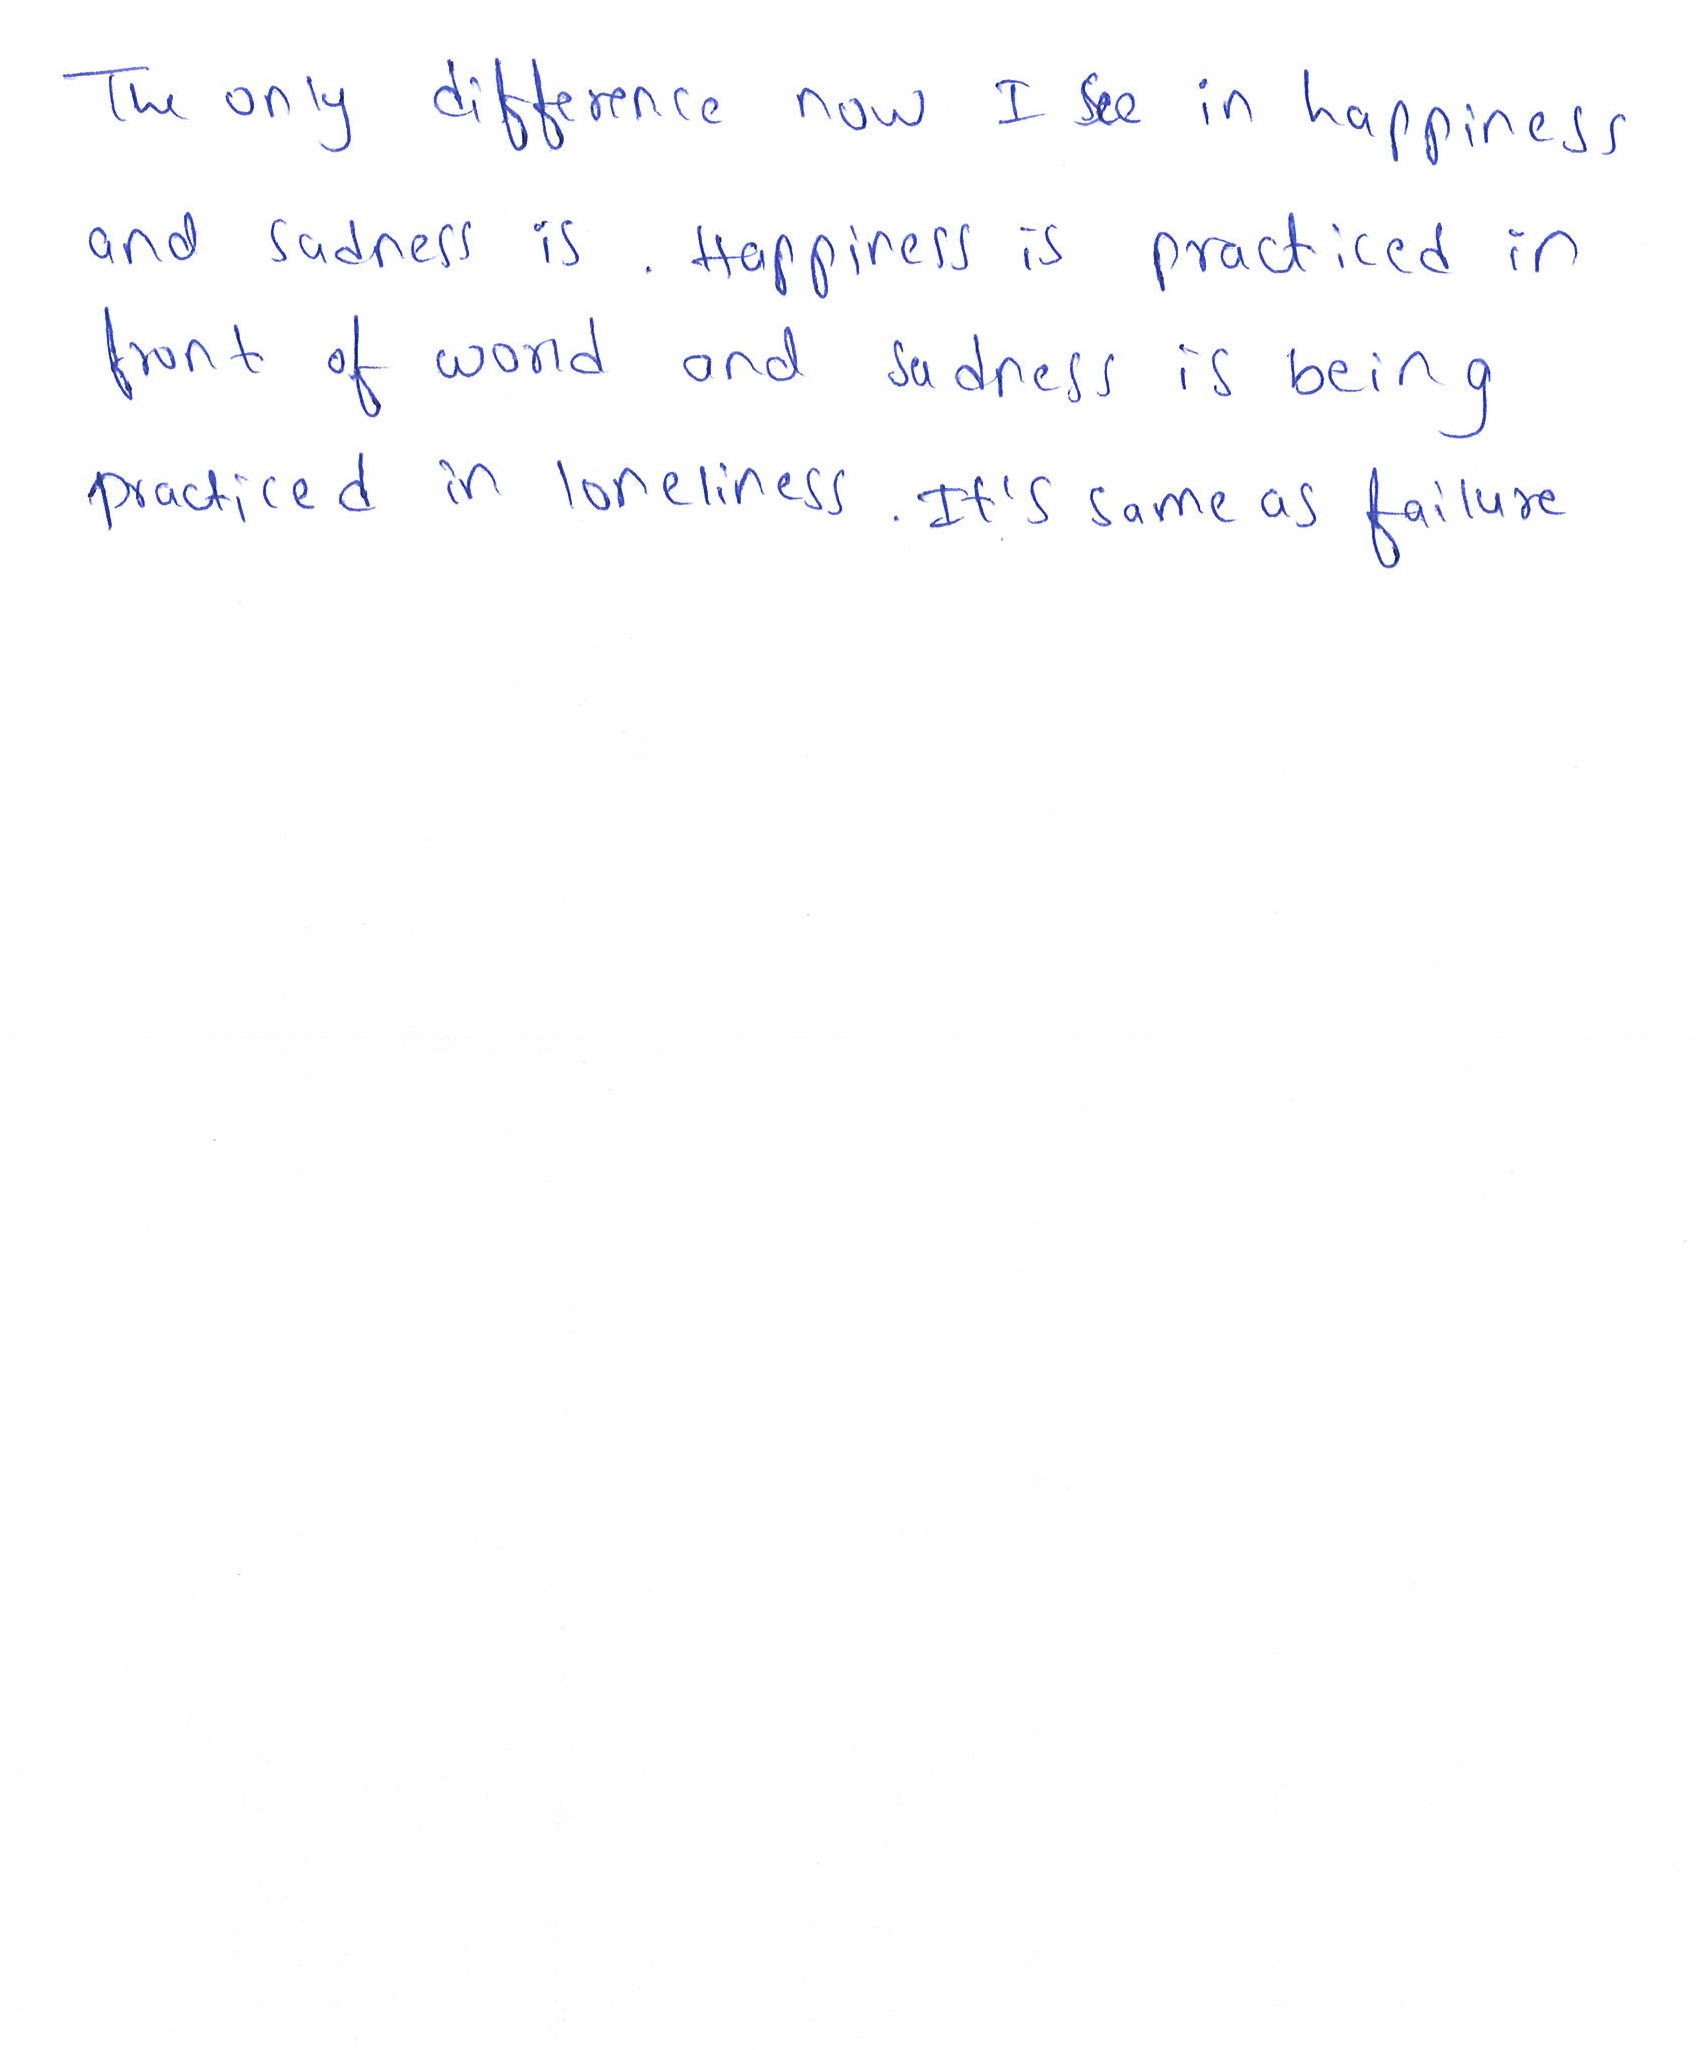 The only difference now I see in happiness
and sadness is . Happiness is practiced in
front of world and sadness is being
practiced in loneliness . It's same as failure